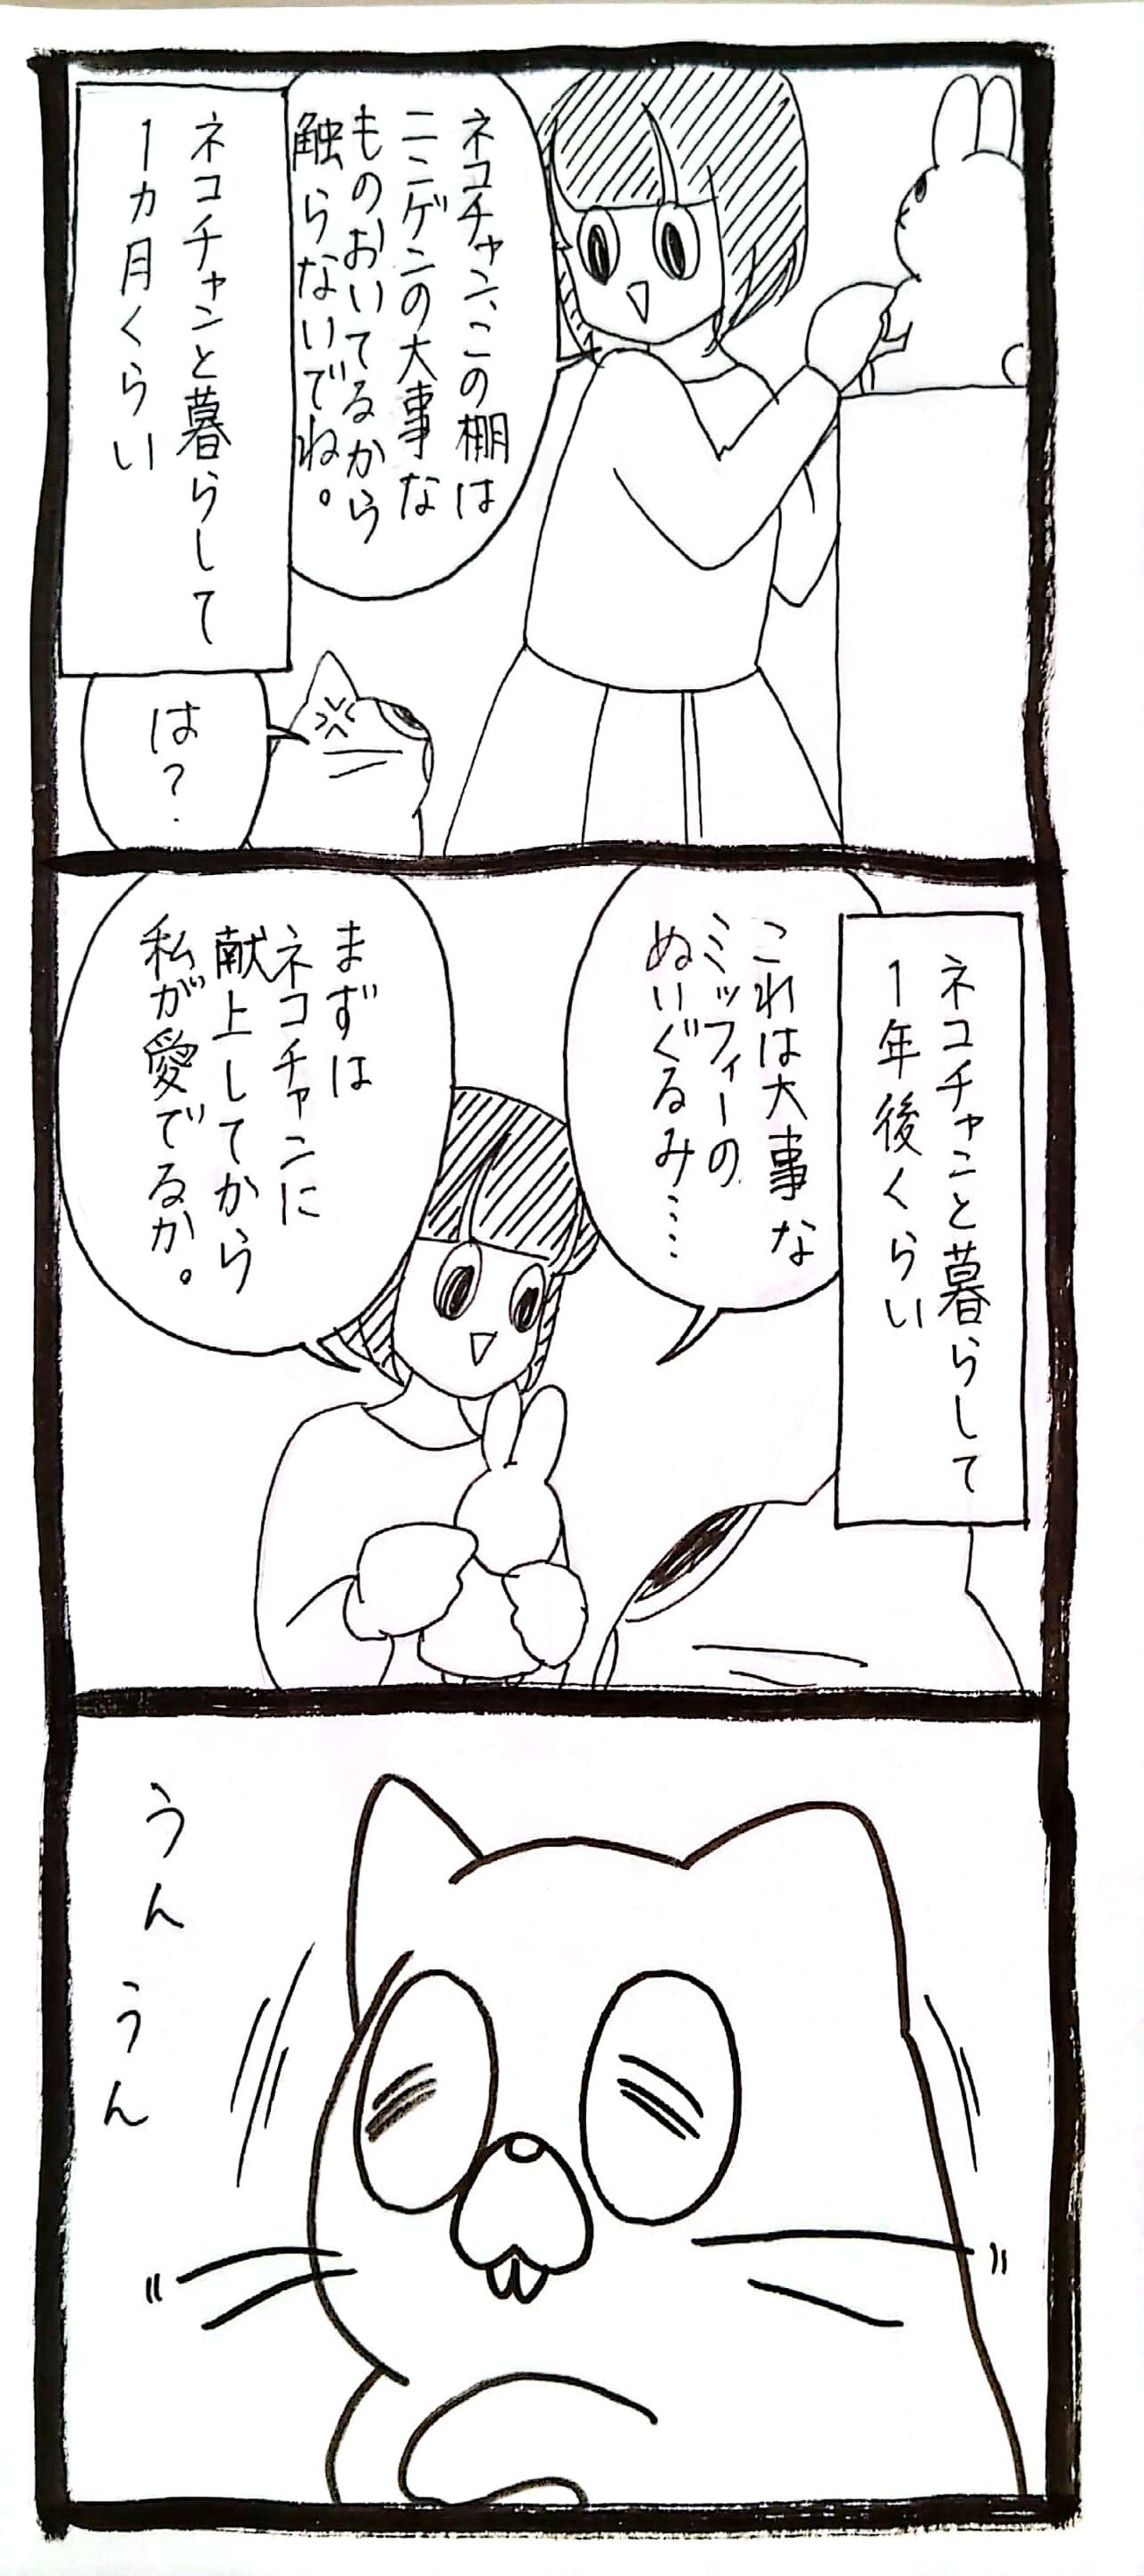 ネコチャン、この棚は
ニンゲンの大事な
ものおいてるから
触らないでね。
ネコチャンと暮らして
1カ月くらい
は?
ネコチャンと暮らして
1年後くらい
これは大事な
ミッフィーの
ぬいぐるみ……
まずは
ネコチャンに
献上してから
私が愛でるか。
うんうん